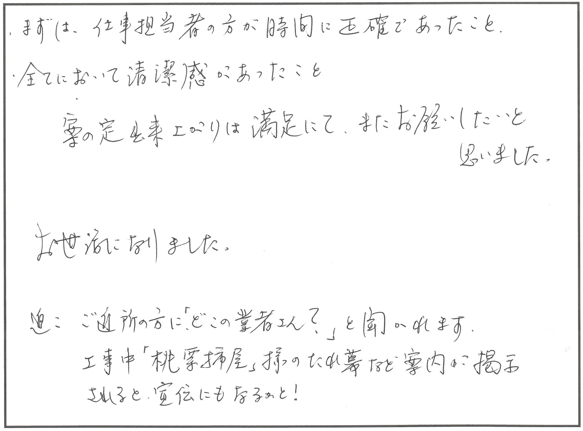 ・まずは、仕事担当者の方が時間に正確であったこと.
・全てにおいて清潔感があったこと
案の定出来上がりは満足にて、またお願いしたいと
思いました。
お世話になりました。
追: ご近所の方に「どこの業者さん?」と聞かれます.
工事中「桃栗柿屋」様のたれ幕など案内が掲示
されると、宣伝にもなるかと!